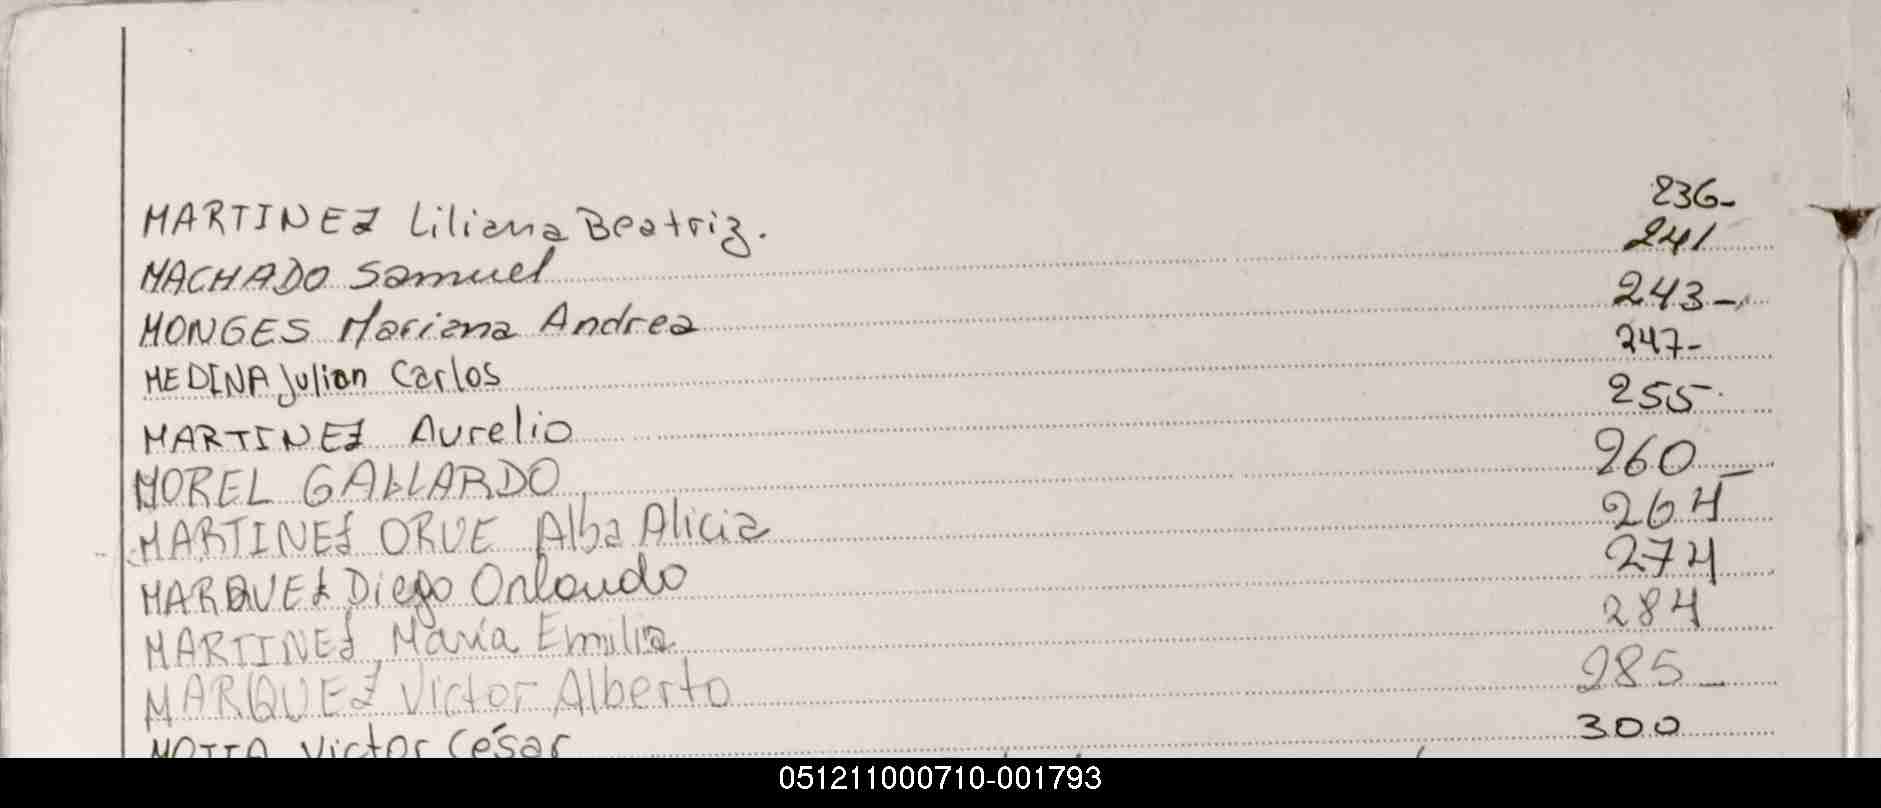 MARTINEZ Liliana Beatriz. 236-
MACHADO Samuel 241
MONGES Mariana Andrea 243-
MEDINA Julian Carlos 247-
MARTINEZ Aurelio 255
MOREL GALLARDO 260-
MARTINEZ ORUE Alba Alicia 264
MARQUEZ Diego Orlando 274
MARTINEZ, María Emilia 284
MARQUEZ Victor Alberto 285-
MOTTA Victor César 300
051211000710-001793